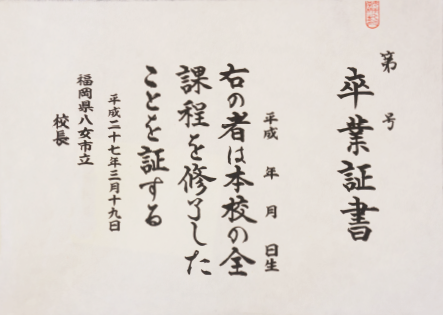 卒業証書
第 号
平成 年 月 日生
右の者は本校の全
課程を修了した
ことを証する
平成二十七年三月十九日
福岡県八女市立
校長